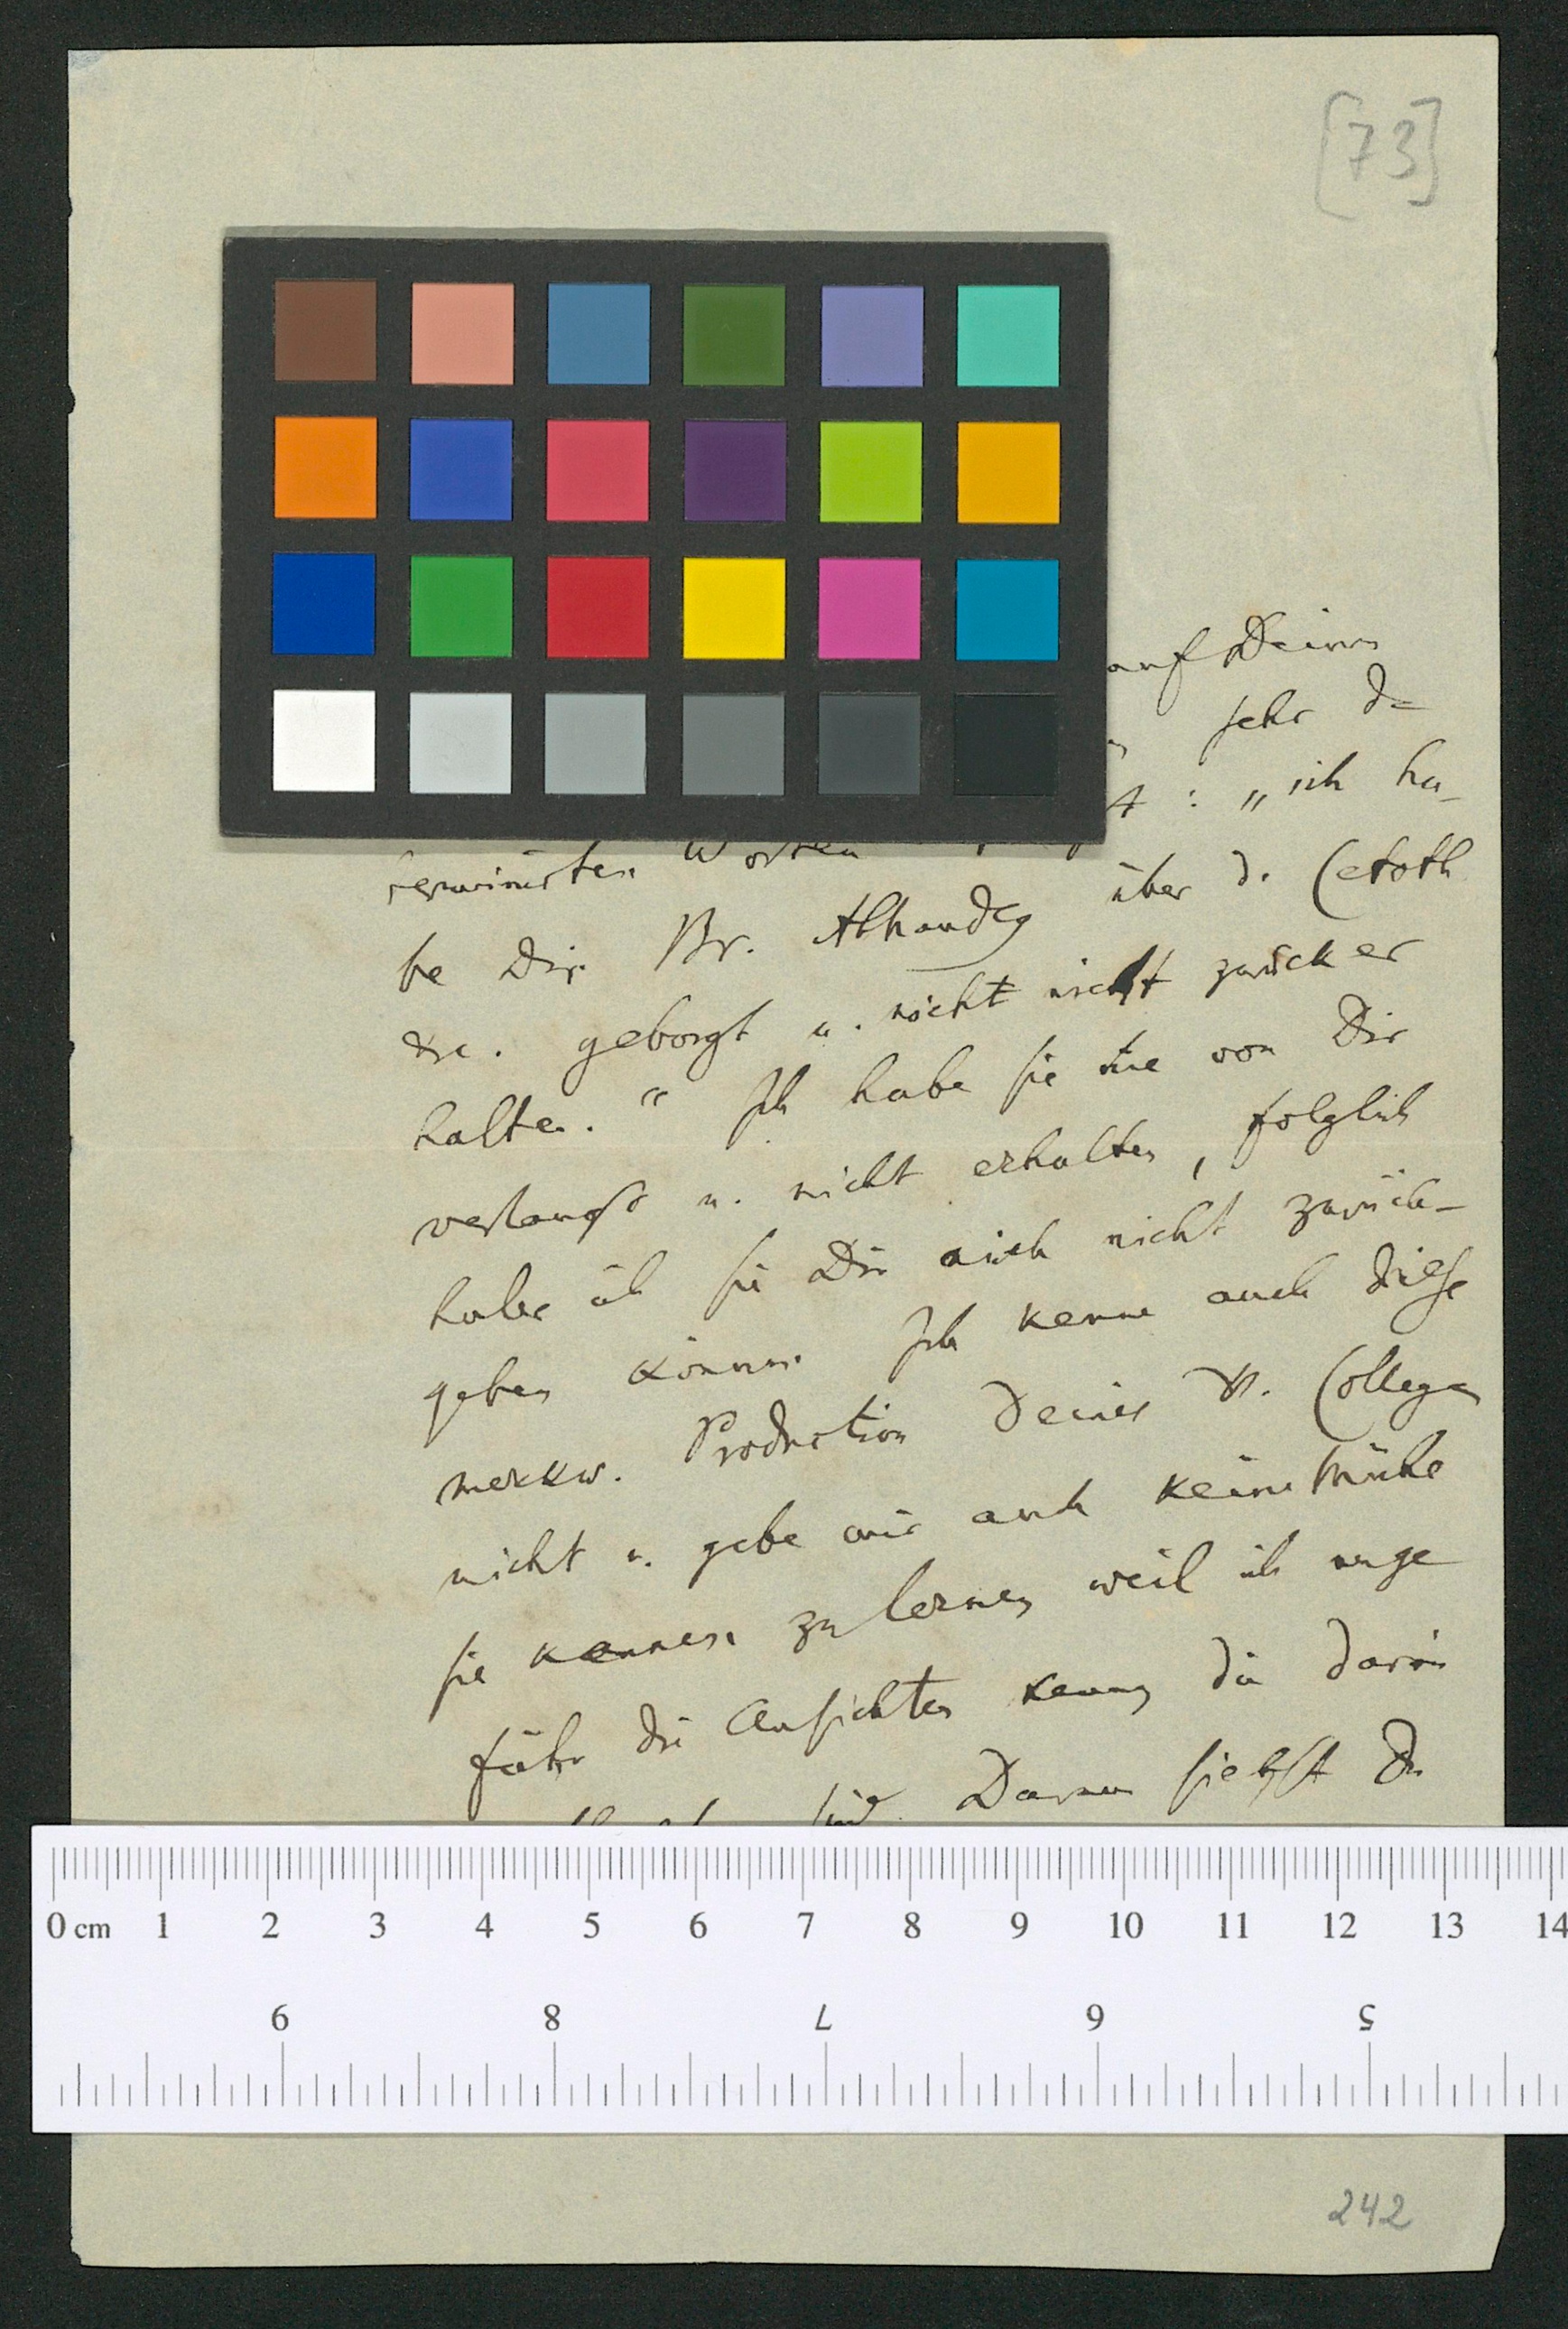 [73]
auf Deinen
sehr da
: „ich ha-
Worten
be Dir Br. Abhandlg über d. Cetoth
etc. geborgt u. nicht nicht zurücker
halten.“ Ich habe sie nie von Dir
verlangt u. nicht erhalten, folglich
habe ich sie Dir auch nicht zurück-
geben können. Ich kenne auch diese
merkw. Production Deines H. Collegen
nicht u. gebe mir auch keine Mühe
sie kennen zu lernen weil ich unge
fähr die Ansichten kenne die darin
sind. Daraus siehst Du
0 cm 1 2 3 4 5 6 7 8 9 10 11 12 13 14
9 8 7 6 5
242